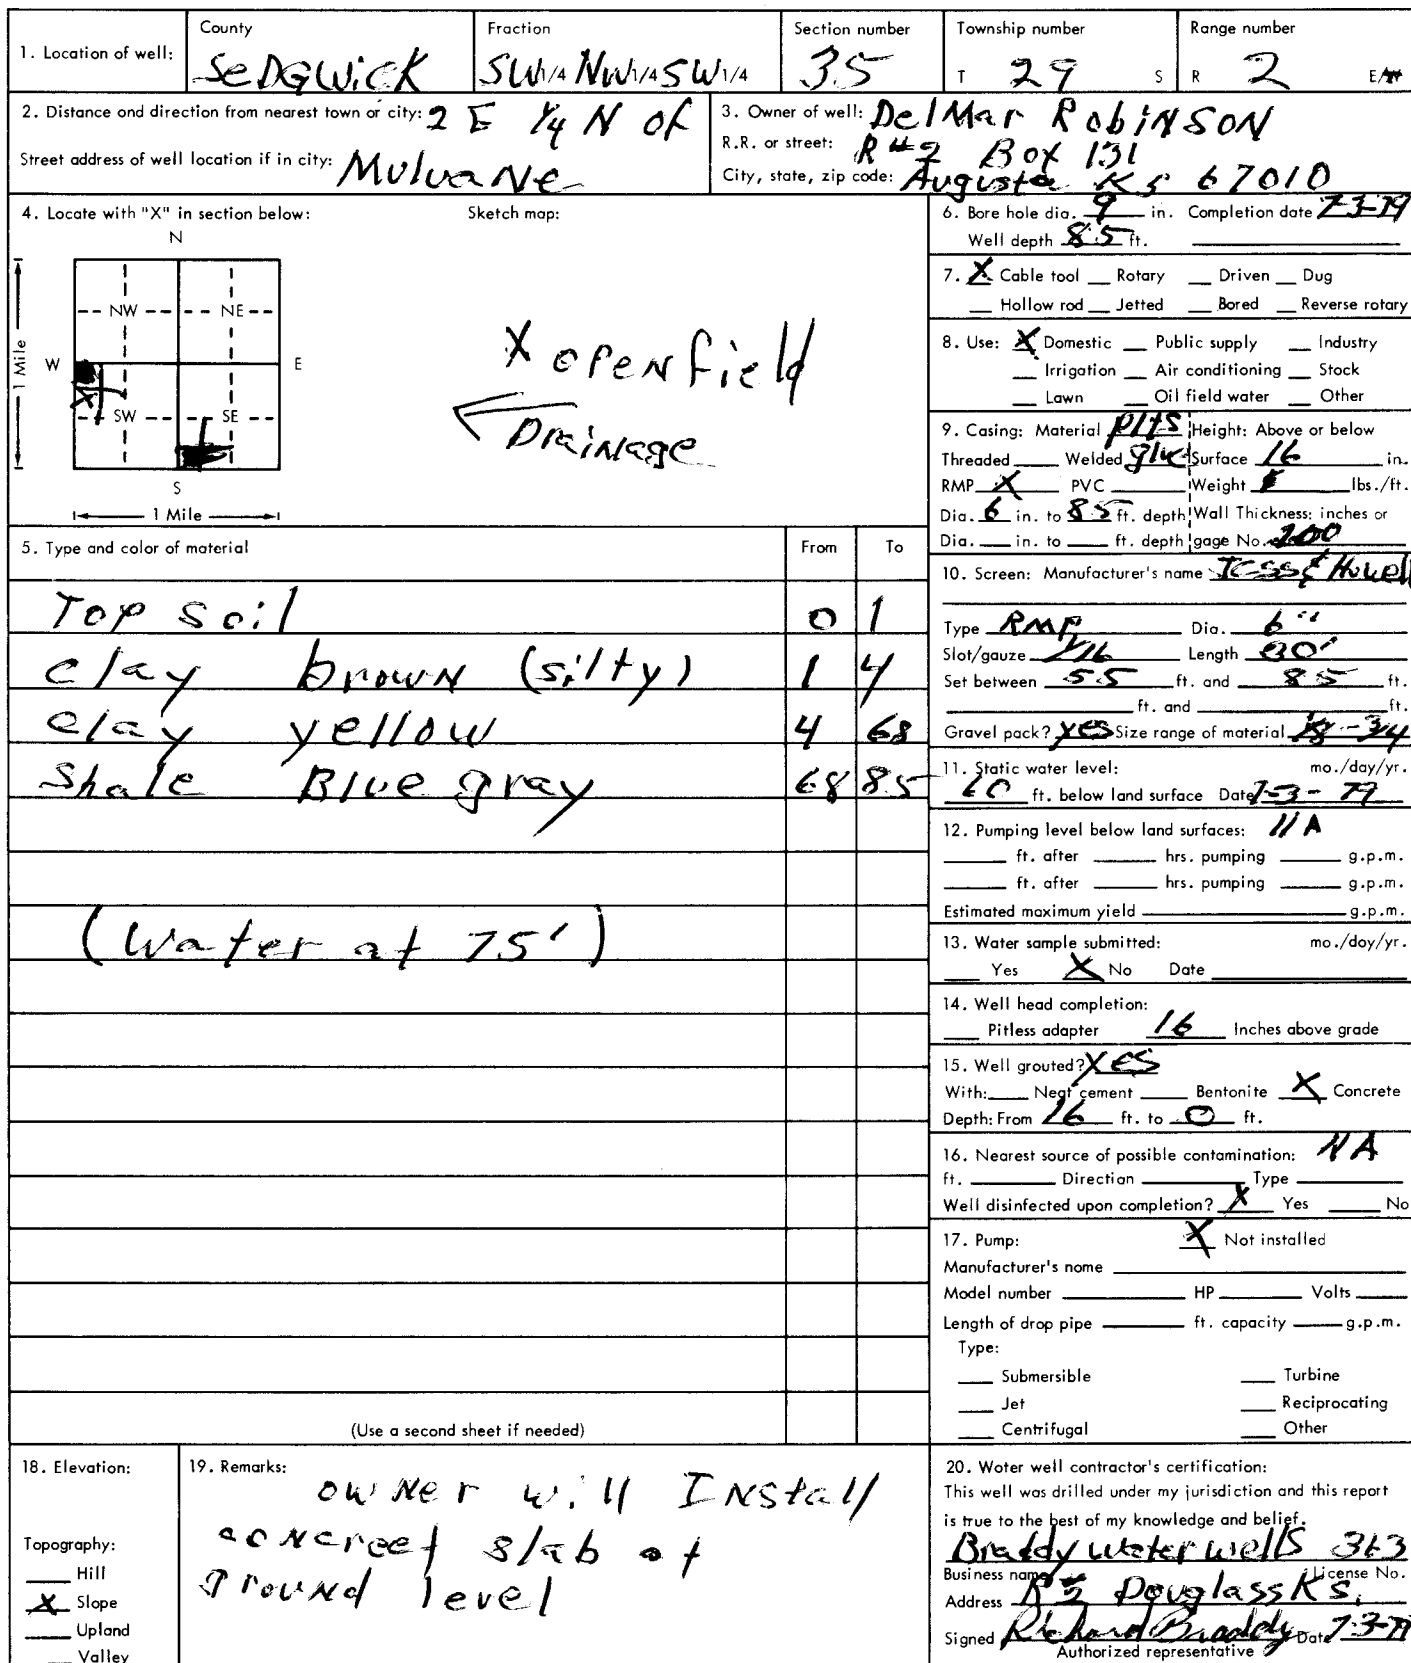 1. Location of well:
County
SEDGWICK
Fraction
SW1/4 NW1/4 SW1/4
Section number
35
Township number
T 29 S
Range number
R 2 E/W
2. Distance and direction from nearest town or city: 2 E 1/4 N of
Street address of well location if in city: Mulvane
3. Owner of well: DelMar RobiNSON
R.R. or street: R #2 Box 131
City, state, zip code: Augusta Ks 67010
4. Locate with "X" in section below:
Sketch map:
N
NW NE
W E
X
SW SE
S
1 Mile
1 Mile
X open field
Drainage
6. Bore hole dia. 9 in. Completion date 7-3-79
Well depth 85 ft.
7. X Cable tool __ Rotary __ Driven __ Dug
__ Hollow rod __ Jetted __ Bored __ Reverse rotary
8. Use: X Domestic __ Public supply __ Industry
__ Irrigation __ Air conditioning __ Stock
__ Lawn __ Oil field water __ Other
9. Casing: Material plts Height: Above or below
Threaded ____ Welded glue Surface 16 in.
RMP X PVC ____ Weight ____ lbs./ft.
Dia. 6 in. to 85 ft. depth Wall Thickness: inches or
Dia. ___ in. to ___ ft. depth gage No. 200
5. Type and color of material From To
Top Soil 0 1
clay brown (silty) 1 4
clay yellow 4 68
Shale Blue gray 68 85
(Water at 75')
(Use a second sheet if needed)
10. Screen: Manufacturer's name & Howell
Type RMP Dia. 6"
Slot/gauze 1/16 Length 30'
Set between 55 ft. and 85 ft.
____ ft. and ____ ft.
Gravel pack? yes Size range of material 1/8 - 3/4
11. Static water level: mo./day/yr.
60 ft. below land surface Date 7-3-79
12. Pumping level below land surfaces: NA
____ ft. after ____ hrs. pumping ____ g.p.m.
____ ft. after ____ hrs. pumping ____ g.p.m.
Estimated maximum yield ____ g.p.m.
13. Water sample submitted: mo./day/yr.
__ Yes X No Date ____
14. Well head completion:
__ Pitless adapter 16 Inches above grade
15. Well grouted? Yes
With: __ Neat cement __ Bentonite X Concrete
Depth: From 16 ft. to 0 ft.
16. Nearest source of possible contamination: NA
ft. ____ Direction ____ Type ____
Well disinfected upon completion? X Yes __ No
17. Pump: X Not installed
Manufacturer's name ____
Model number ____ HP ____ Volts ____
Length of drop pipe ____ ft. capacity ____ g.p.m.
Type:
__ Submersible __ Turbine
__ Jet __ Reciprocating
__ Centrifugal __ Other
18. Elevation:
Topography:
__ Hill
X Slope
__ Upland
__ Valley
19. Remarks:
owner will Install
concreet slab at
ground level
20. Water well contractor's certification:
This well was drilled under my jurisdiction and this report
is true to the best of my knowledge and belief.
Braddy water wells 363
Business name License No.
Address Douglass Ks.
Signed Richard Braddy Date 7-3-79
Authorized representative